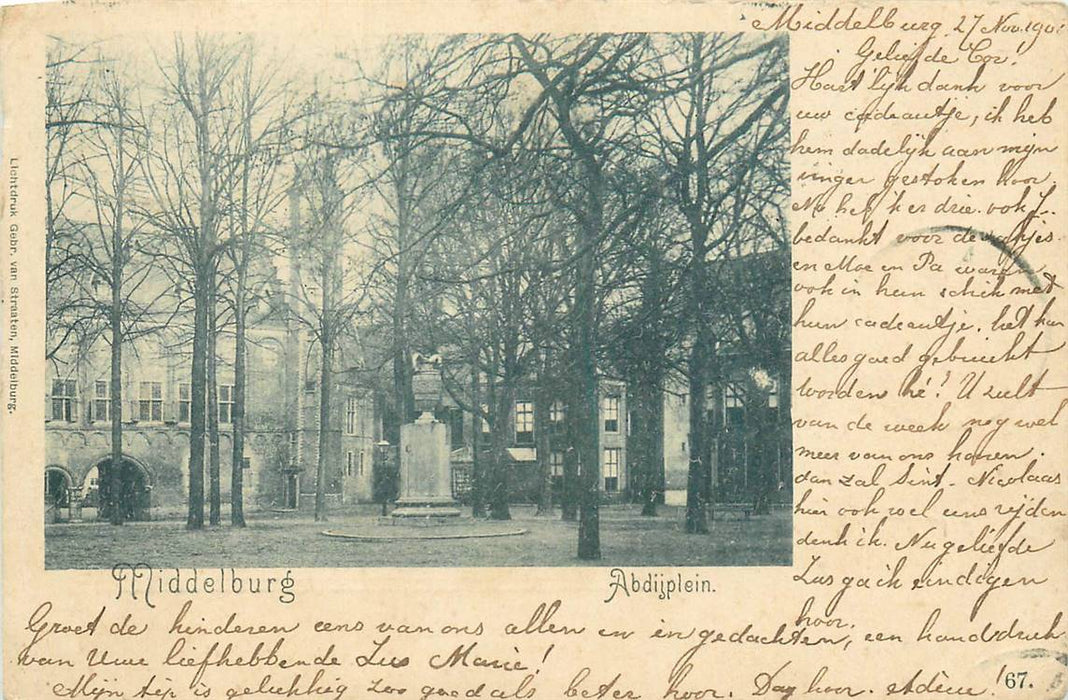 Middelburg 27 Nov. 190
Geliefde Cor!
Hart'lijk dank voor
uw cadeautje, ik heb
hem dadelijk aan mijn
vinger gestoken hoor
bedankt voor de
en Moe en Pa waren
ook in hun schik met
hun cadeautje, het kan
alles goed gebruikt
worden hè? U zult
van de week nog wel
meer van ons hooren.
dan zal Sint. Nicolaas
hier ook wel eens rijden
denk ik. Nu geliefde
Zus ga ik eindigen
hoor.
Groet de kinderen eens van ons allen en in gedachten, een handdruk
van Uwe liefhebbende Zus Marie!
Mijn is gelukkig zoo goed als beter hoor. Dag hoor. adieu
Middelburg
Abdijplein.
67.
Lichtdruk Gebr. van Straaten, Middelburg.